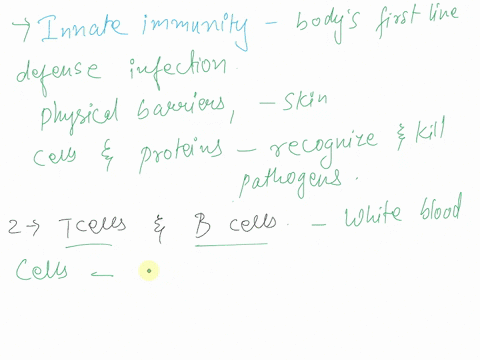 → Innate immunity - body's first line
defense infection.
Physical barriers, - skin
Cells & proteins - recognize & kill
pathogens.
2→ T cells & B cells. - White blood
Cells -